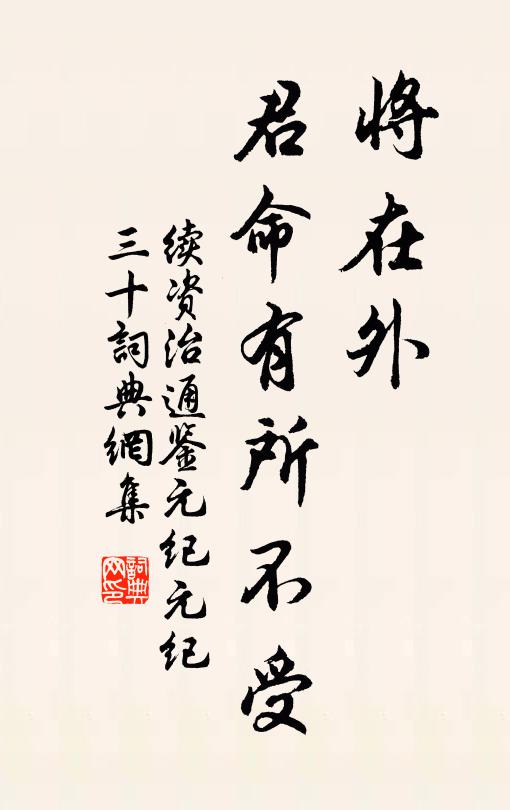 將在外
君命有所不受
续资治通鉴元纪元纪
三十詞典網集
詞典网印